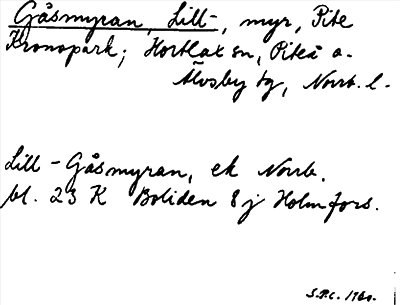 Gåsmyran, Lill-, myr, Pite
Kronopark; Hortlax sn, Piteå o.
Älvsby tg, Norrb. l.
Lill-Gåsmyran, ek Norrb.
bl. 23 K Boliden 8 j Holmfors.
S.P.C. 1960.